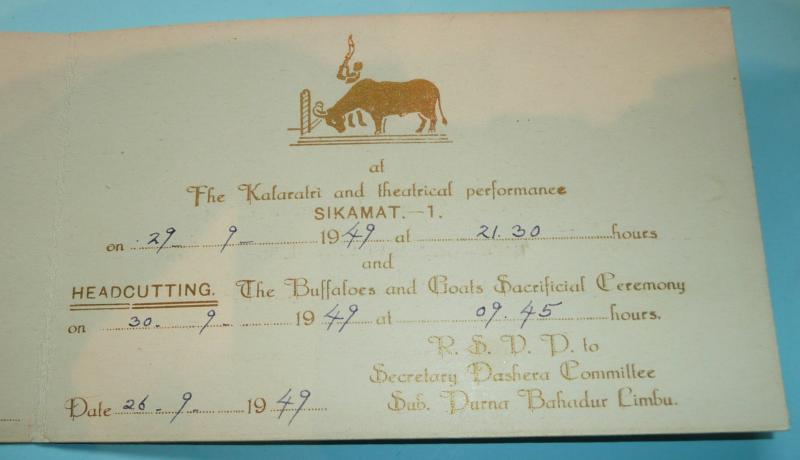 at
The Kalaratri and theatrical performance
SIKAMAT.-1.
on 29 9 1949 at 21.30 hours
and
HEADCUTTING. The Buffaloes and Goats Sacrificial Ceremony
on 30. 9. 1949 at 09.45 hours.
R. S. V. P. to
Secretary Dashera Committee
Date 26.9.1949 Sub. Purna Bahadur Limbu.